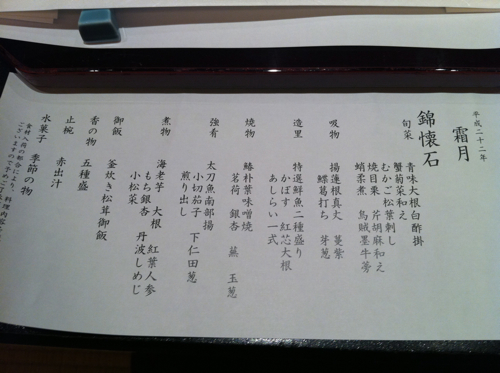 平成二十二年
霜月
錦懐石
旬菜
青味大根白酢掛
蟹菊菜和え
むかご松葉刺し
焼目栗 芹胡麻和え
蛸柔煮 烏賊墨牛蒡
吸物
揚蓮根真丈 蔓紫
鰈葛打ち 芽葱
造里
特選鮮魚二種盛り
かぼす 紅芯大根
あしらい一式
焼物
鰆朴葉味噌焼
茗荷 銀杏 蕪 玉葱
強肴
太刀魚南部揚
小切茄子 下仁田葱
煎り出し
煮物
海老芋 大根 紅葉人参
もち銀杏 丹波しめじ
小松菜
御飯
釜炊き松茸御飯
香の物
五種盛
止椀
赤出汁
水菓子
季節の物
食材入荷の都合により、料理内容
ございますので予めご